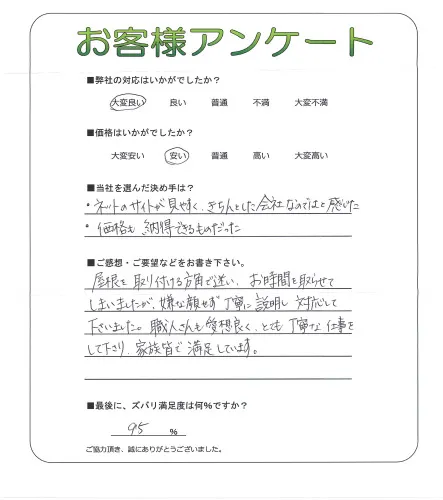 お客様アンケート
■弊社の対応はいかがでしたか?
大変良い 良い 普通 不満 大変不満
■価格はいかがでしたか?
大変安い 安い 普通 高い 大変高い
■当社を選んだ決め手は?
・ネットのサイトが見やすく、きちんとした会社なのではと感じた
・価格も納得できるものだった
■ご感想・ご要望などをお書き下さい。
屋根を取り付ける方角で迷い、お時間を取らせて
しまいましたが、嫌な顔せず丁寧に説明し対応して
下さいました。職人さんも愛想良く、とても丁寧な仕事を
して下さり、家族皆で満足しています。
■最後に、ズバリ満足度は何%ですか?
95 %
ご協力頂き、誠にありがとうございました。